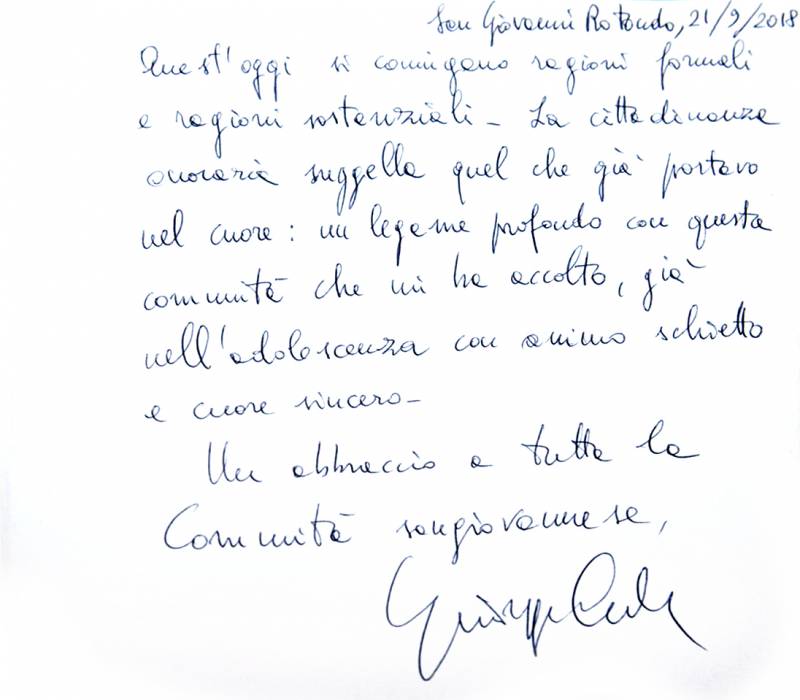 San Giovanni Rotondo, 21/9/2018
Quest'oggi si coniugano ragioni formali
e ragioni sostanziali - La cittadinanza
onoraria suggella quel che già portavo
nel cuore: un legame profondo con questa
comunità che mi ha accolto, già
nell'adolescenza con animo schietto
e cuore sincero -
Un abbraccio a tutta la
Comunità sangiovannese,
Giuseppe